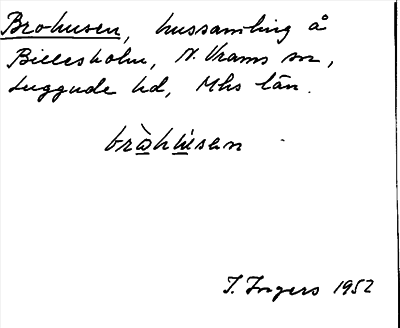 Brohusen, hussamling å
Billesholm, N. Vrams sn,
Luggude hd, Mhs län.
bròhúsen
I. Ingers 1952